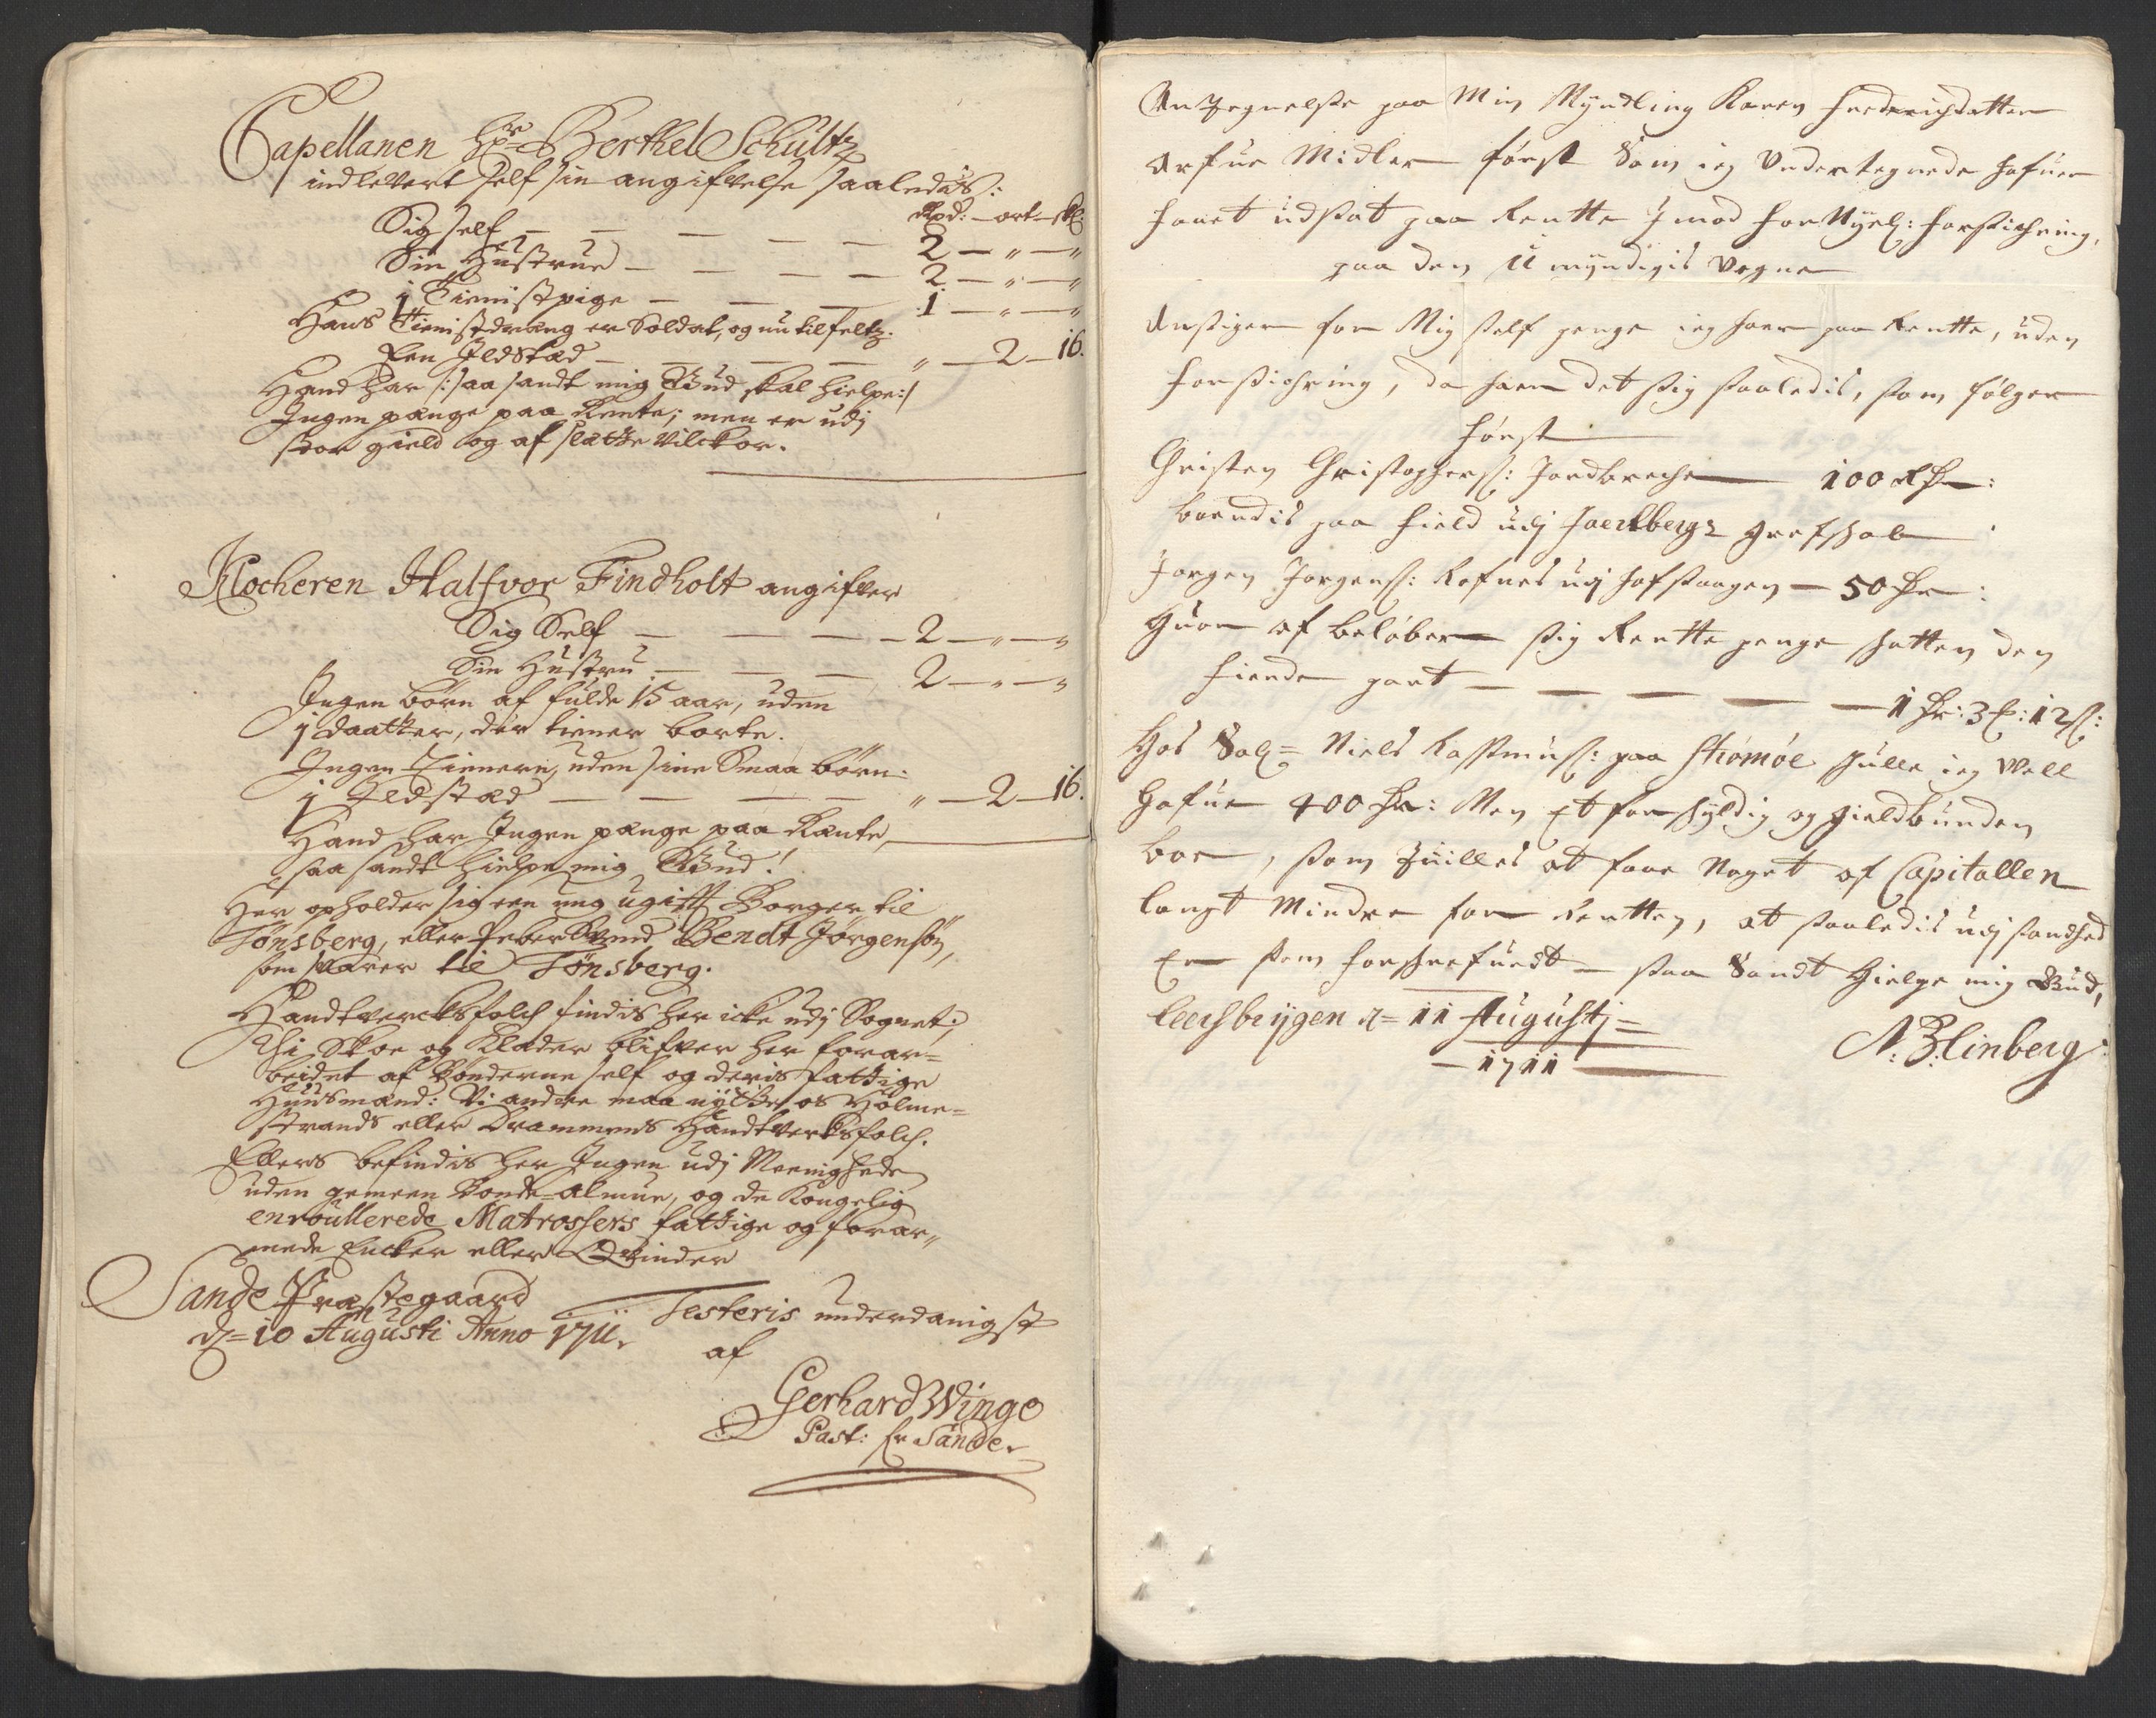 Capellanen Hr= Berthel Schultz
indlevert self sin angifvelse saaledis:
Rixd: - ort - sk:
Sig self — — — — 2 — " — "
Sin Hustrue — — — — 2 — " — "
1 Tienistpige — — — 1 — " — "
Hans Tienistdreng er Soldat, og nu til felts.
Een Ildstæd — — — — " — 2 — 16.
Hand har /: saa sandt mig Gud skal hielpe :/
Ingen pænge paa Rente; men er udj
stor gield og af slætte vilckor.
Klocheren Halfvor Findholt angifver
Sig Self — — — — 2 — " — "
Sin Hustru — — — 2 — " — "
Ingen børn af fulde 15 aar, uden
1 daatter, der tiener borte.
Ingen Tienere, uden sine Smaa børn.
1 Ildstæd — — — — " — 2 — 16.
Hand har Ingen pænge paa Rænte,
saa sandt hielpe mig Gud!
Her opholder sig een ung ugift Borger til
Tönsberg, eller Peber Svend Bendt Jörgensön,
som svarer til Tönsberg.
Handtvercksfolch findis her icke udj Sognet;
Thi Skoe og Klæder blifver her forar=
beidet af Bønderne self og deris fattige
Huusmænd: Vi andre maa nytte os Holme=
strands eller Drammens Handtverksfolch.
Ellers befindis her Ingen udj Meenighede
uden gemeen Bonde=almue, og de Kongelig
enroullerede Matrossers fattige og forar„
mede Encker eller Qvinder
Sande Præstegaard
d= 10 Augusti Anno 1711.
Testeris underdanigst
af
Gerhard Winge
Past: Sande.
An Tegnelse paa Min Myndling Karen Frederichsdatter
Arfue Midler først Som ieg Undertegnede hafuer
hauet udsat paa Rentte Imod for Nyel: forsichring,
paa den U myndigis Vegne
Ansiger for Mig self penge ieg haer paa Rentte, uden
forsichring, da haer det sig saaledis, som følger
først
Christen Christophers: Jordbreche — 100 Rdr:
boendis paa field udj Jarlsbergs Grefschab
Jorgen Jorgens: Refnes udj Hafslaagen — 50 dr:
Huor af beløber sig Rentte penge Schatten den
fierde part — — — — — 1 dr: 3 : 12 s:
Hos Sal= Niels Rassmus: paa Strömöe skulle ieg Vell
Hafue 400 dr: Men Et forskyldig og Gieldbunden
boe, som Tuilles at faae Noget af Capitallen
langt Mindre for Rentten, at saaledis udj sandhed
Er som forschrefuedt — saa Sandt Hielpe mig Gud,
Leersbrygen d= 11 Augustj =
— 1711 —
N. B. Linberg